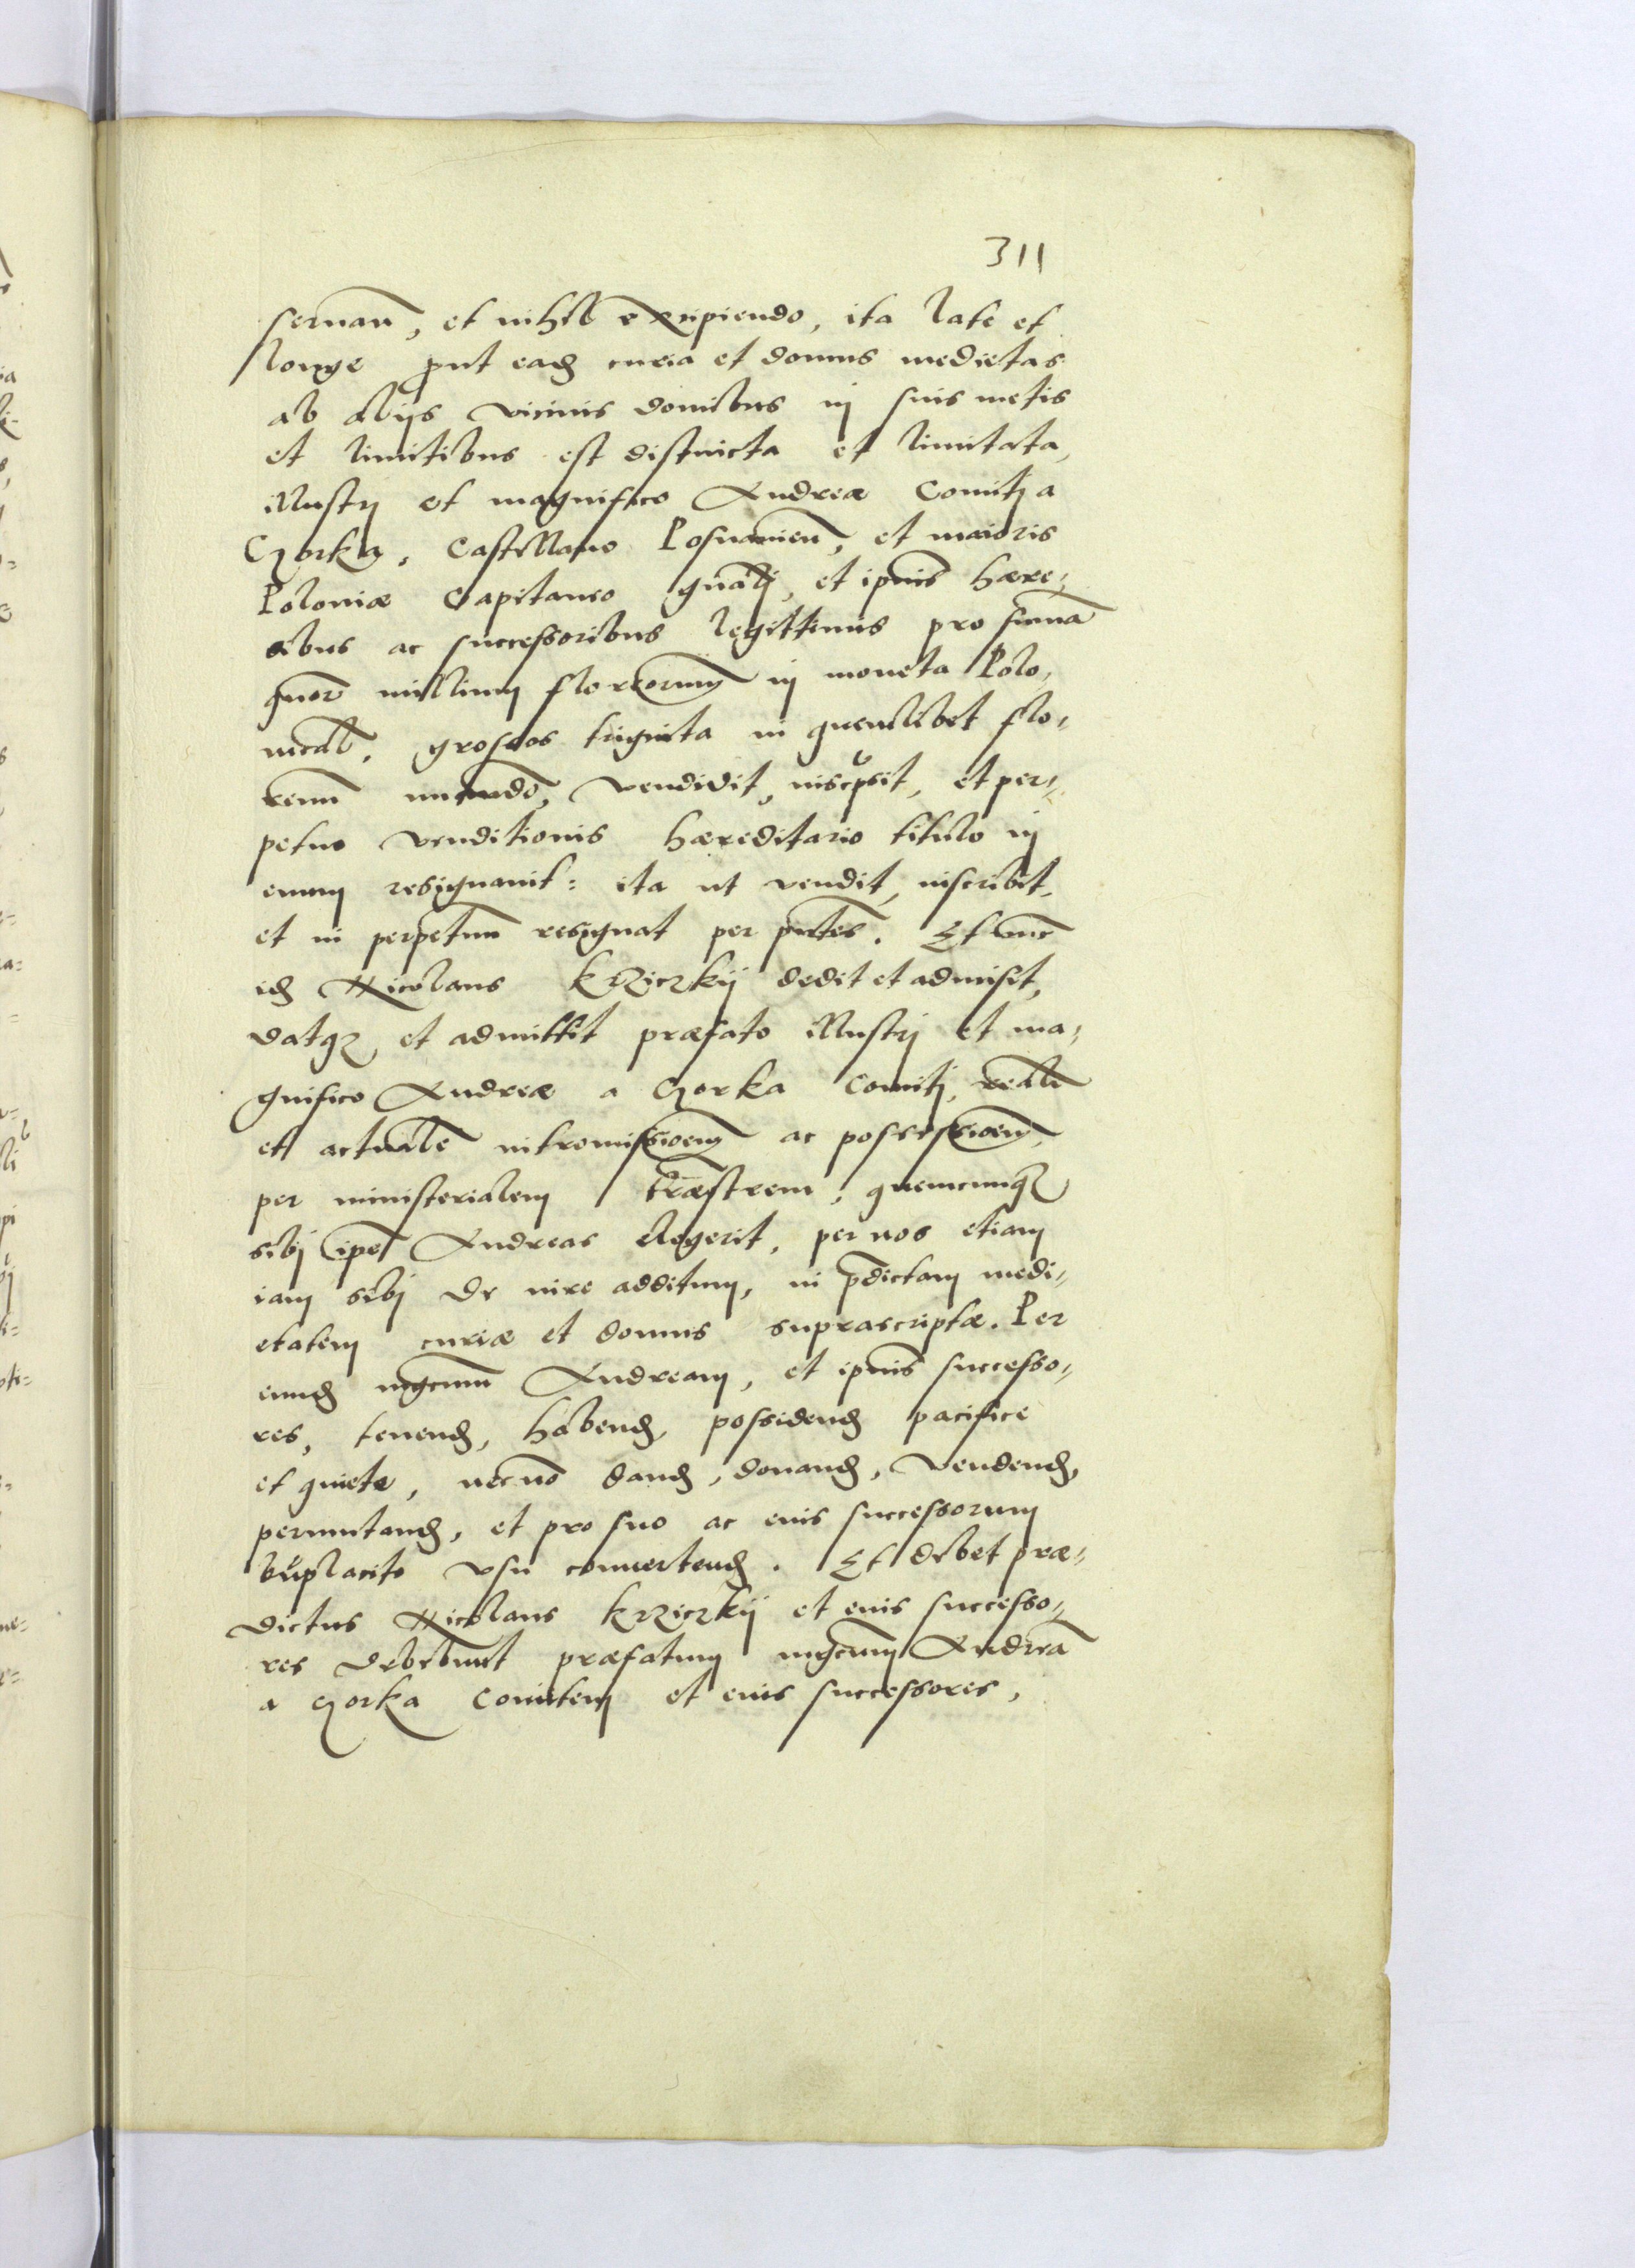 311
seruan̄, et nihil excipiendo, ita late et
longe put ead curia et domus medietas
ab alijs vicinis domibus in suis metis
et limitibus est distincta et limitata,
illustrj et magnifico Andreæ Comitj a
Gorka, Castellano Posnanien̄, et maioris
Poloniæ Capitaneo gnālj, et ipīus hære,
dibus ac successoribus legittimis pro suma
quor millium florenorum in moneta Polo,
nicāl, grossos triginta in quemlibet flo,
renū nūerādō, vendidit, inscpsit, et per,
petuo venditionis hæreditario titulo in
eunm resignauit: ita ut vendit, inscribit,
et in perpetuū resignat per pntes. Et nūc
id Nicolaus Krziczkij dedit et admisit,
datqz et admittit præfato illustrj et ma,
gnifico Andreæ a Gorka Comitj, realē
et actualē intromissioem ac possessioem,
per ministerialem træstrem, quemcunqz
sibj ipe Andreas elegerit, per nos etiam
iam sibj de iure additum, in pdictam medi,
etatem curiæ et domus suprascriptæ. Per
eund mgcum Andream, et ipīus successo,
res, tenend, habend, possidend pacifice
et quiete, necnō dand, donand, vendend,
permutand, et pro suo ac eius successorum
bnplacito vsu conuertend. Et debet præ,
dictus Nicolaus Krziczkij et eius successo,
res debebunt præfatum mgcum Andreā
a Gorka Comitem et eius successores,